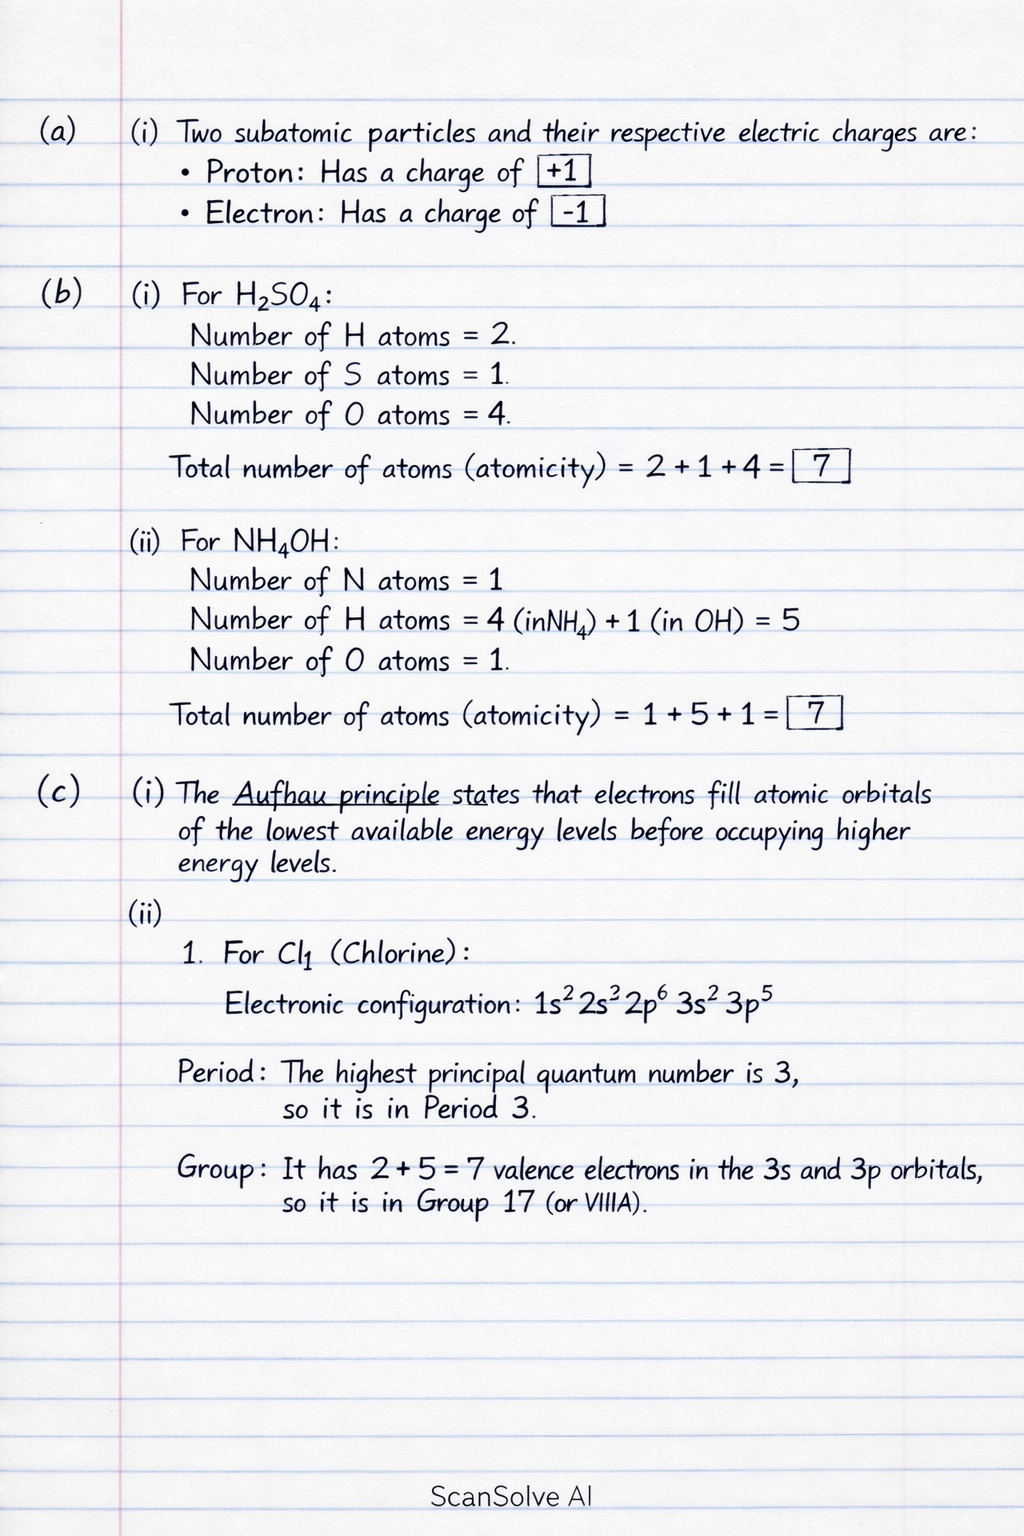 (a) (i) Two subatomic particles and their respective electric charges are:
• Proton: Has a charge of +1
• Electron: Has a charge of -1
(b) (i) For H₂SO₄:
Number of H atoms = 2.
Number of S atoms = 1.
Number of O atoms = 4.
Total number of atoms (atomicity) = 2 + 1 + 4 = 7
(ii) For NH₄OH:
Number of N atoms = 1
Number of H atoms = 4 (inNH₄) + 1 (in OH) = 5
Number of O atoms = 1.
Total number of atoms (atomicity) = 1 + 5 + 1 = 7
(c) (i) The Aufhau principle states that electrons fill atomic orbitals
of the lowest available energy levels before occupying higher
energy levels.
(ii)
1. For Cl₁ (Chlorine):
Electronic configuration: 1s² 2s² 2p⁶ 3s² 3p⁵
Period: The highest principal quantum number is 3,
so it is in Period 3.
Group: It has 2 + 5 = 7 valence electrons in the 3s and 3p orbitals,
so it is in Group 17 (or VIIIA).
ScanSolve AI